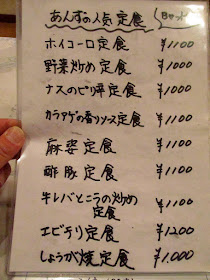 あんずの人気定食
ホイコーロ定食 ¥1100
野菜炒め定食 ¥1000
ナスのピリ辛定食 ¥1000
カラアゲの香りソース定食 ¥1100
麻婆定食 ¥1100
酢豚定食 ¥1100
牛レバとニラの炒め
定食 ¥1100
エビチリ定食 ¥1200
しょうが焼定食 ¥1.000